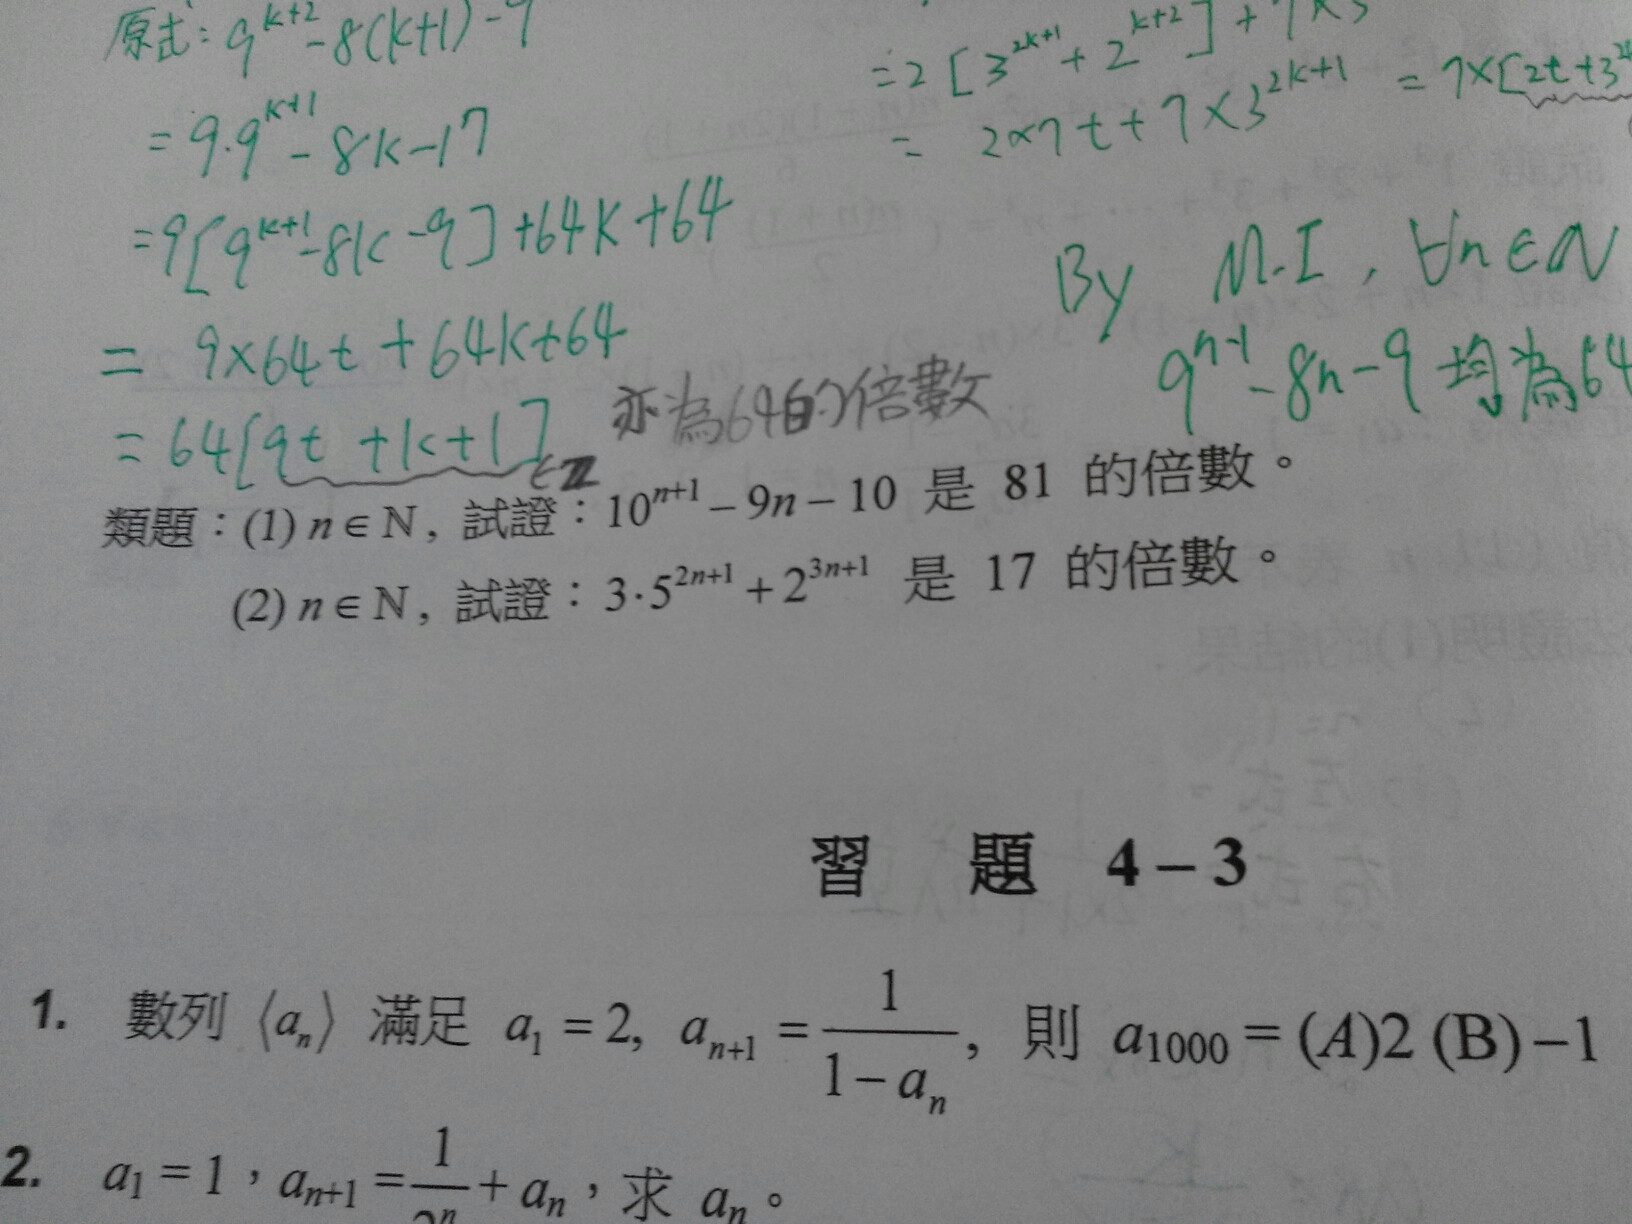 原式：9^{k+2}-8(k+1)-9
=9·9^{k+1}-8k-17
=9[9^{k+1}-8k-9]+64k+64
= 9×64t+64k+64
=64[9t+k+1] ∈Z 亦為64的倍數
=2[3^{2k+1}+2^{k+2}]+7×3
= 2×7t+7×3^{2k+1} =7×[2t+3
By M.I, ∀n∈N
9^{n-1}-8n-9均為64
類題：(1) n∈N, 試證：10^{n+1}-9n-10 是 81 的倍數。
(2) n∈N, 試證：3·5^{2n+1}+2^{3n+1} 是 17 的倍數。
習 題 4-3
1. 數列 〈a_n〉 滿足 a_1=2, a_{n+1}=\frac{1}{1-a_n}, 則 a_{1000}=(A)2 (B)-1
2. a_1=1，a_{n+1}=\frac{1}{2^n}+a_n，求 a_n。